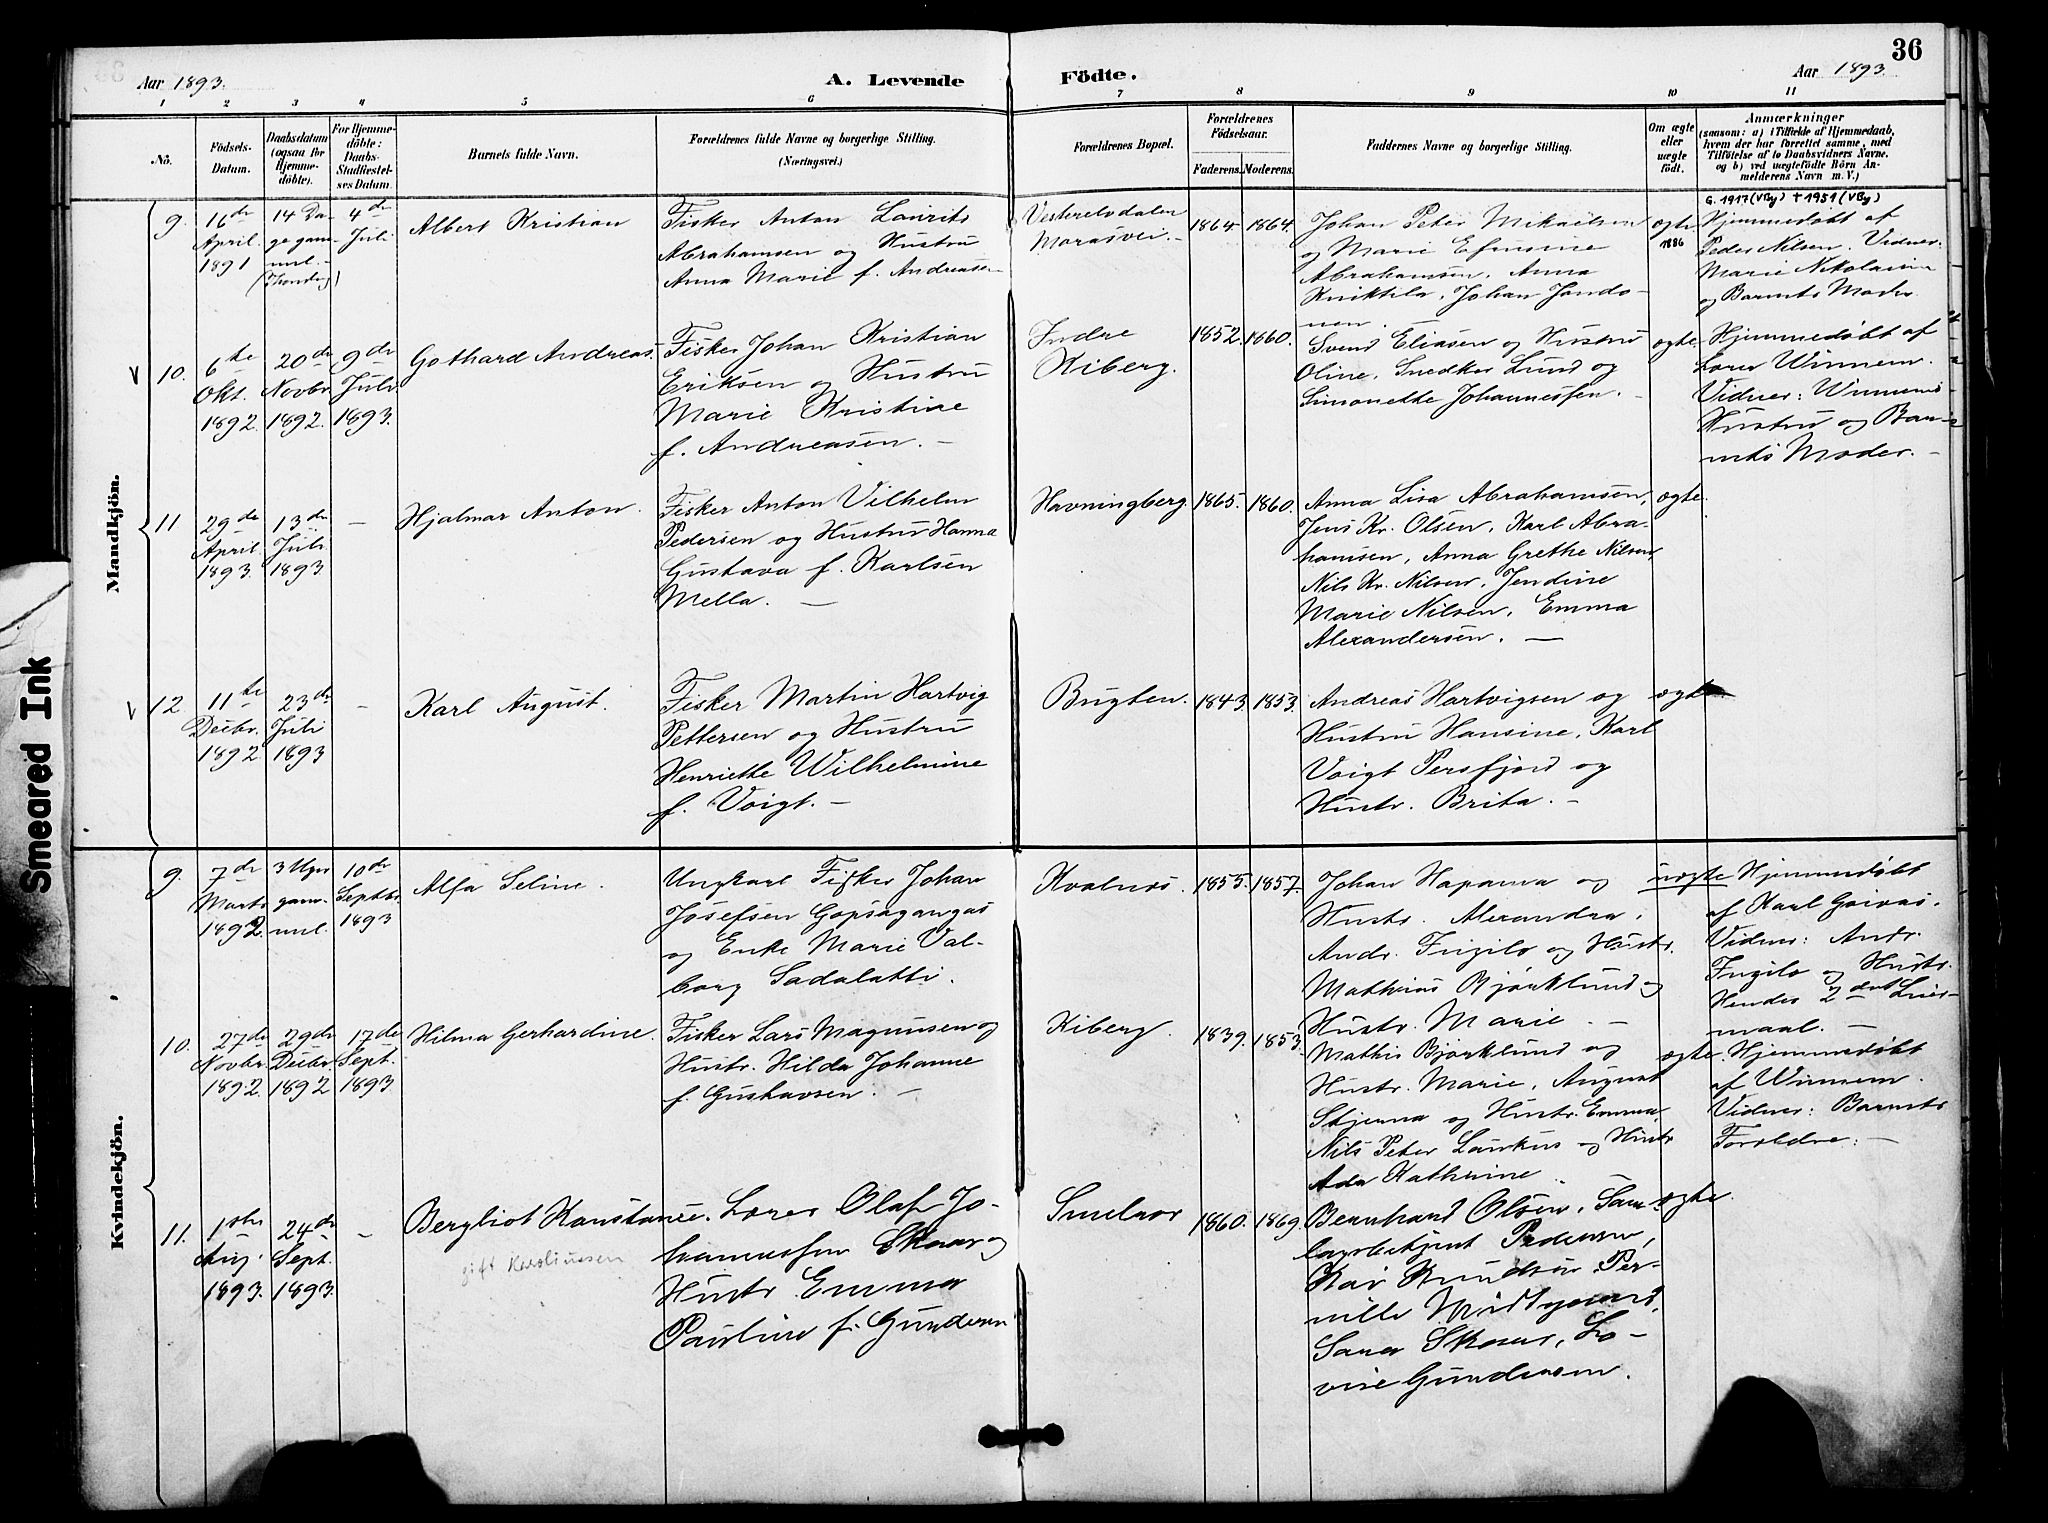 36
Aar 1893.
A. Levende
Födte.
Aar 1893
1 2 3 4 5 6 7 8 9 10 11
No.
Födsels-
Datum.
Daabsdatum
(ogsaa for
Hjemme-
döbte).
For Hjemme-
döbte:
Daabs-
Stadfæstel-
ses Datum.
Barnets fulde Navn.
Forældrenes fulde Navne og borgerlige Stilling.
(Næringsvei.)
Forældrenes Bopæl.
Forældrenes
Födselsaar.
Faderens.
Moderens.
Faddernes Navne og borgerlige Stilling.
Om ægte
eller
uægte
födt.
Anmærkninger
(saasom: a) i Tilfælde af Hjemmedaab,
hvem der har forrettet samme, med
Tilföielse af to Daabsvidners Navne,
og b) ved uægtefödte Börn An-
melderens Navn m. V.)
Mandkjön.
9.
16de
April
1891
14 Da-
ge gam-
mel.
4de
Juli
Albert Kristian
Fisker Anton Laurits
Abrahamsen og Hustru
Anna Marie f. Andreasen
Vesterelvdalen
1864
1864.
Johan Peter Mikaëlsen
og Marie
Abrahamsen, Anna
Johan
ægte
1886
G. 1917 (VBy) † 1951 (VBy)
Hjemmedøbt af
Peder Nilsen. Vidner:
Marie
og Barnets Moder
V 10.
6te
Okt.
1892.
20de
Novbr
1892.
9de
Juli
1893.
Gothard Andreas.
Fisker Johan Kristian
Eriksen og Hustru
Marie Kristine
f. Andreasen. -
Indre
Kiberg.
1852.
1860.
Svend Eliasen og Hustru
Oline, Snedker Lund og
Simonette Johannessen. -
ægte.
Hjemmedøbt af
Lærer Winnem.
Vidner: Winnems
Hustru og Bar-
nets Moder. -
11
29de
April
1893.
13de
Juli
1893
-
Hjalmar Anton.
Fisker Anton Vilhelm
Pedersen og Hustru Hanna
Gustava f. Karlsen
Mella. -
Havningberg.
1865.
1860.
Anna Lisa Abrahamsen,
Jens Kr. Olsen, Karl Abra-
hamsen, Anna Grethe Nilsen,
Nils Kr. Nilsen, Jendine
Marie Nilsen, Emma
Alexandersen. -
ægte.
V 12.
11te
Decbr.
1892
23de
Juli
1893
-
Karl August.
Fisker Martin Hartvig
Pettersen og Hustru
Henriette Wilhelmine
f. Voigt. -
Bugten.
1843.
1853.
Andreas Hartvigsen og
Hustru Hansine, Karl
Voigt Persfjord og
Hustr. Brita. -
ægte
Kvindekjön.
9.
7de
Marts
1892.
3 Uger
gam-
mel.
10de
Septbr
1893
Alfa Seline.
Ungkarl Fisker Johan
Josefsen
og Enke Marie Val-
borg Sadalatti.
Kvalnes.
1855.
1857.
Johan Hapama og
Hustr. Alexandra,
Andr. og Hustr.
Mathias Bjørklund og
Hustr. Marie. -
uægte
Hjemmedøbt
af Karl
Vidner: Andr.
og Hustr.
Hendes 2det Leier-
maal. -
10.
27de
Novbr
1892.
29de
Decbr.
1892
17de
Sept.
1893
Hilma Gerhardine.
Fisker Lars Magnusen og
Hustr. Hilda Johanne
f. Gustavsen. -
Kiberg.
1839.
1853.
Mathis Bjørklund og
Hustr. Marie, August
Stjerna og Hustr. Emma,
Nils Peter og Hustr
Ada Kathrine.
ægte.
Hjemmedøbt
af Winnem.
Vidner: Barnets
Forældre. -
11.
1ste
Aug.
1893.
24de
Sept.
1893.
-
Bergliot Konstance.
gift Karoliussen
Lærer Olaf Jo-
hannessen Skaar og
Hustr Emma
Pauline f. Gundersen
Smelror
1860.
1869.
Bernhard Olsen,
Pedersen,
Knudsen, Per-
nille
Sara Skaar, Lo-
vise Gundersen.
ægte.
Smeared Ink